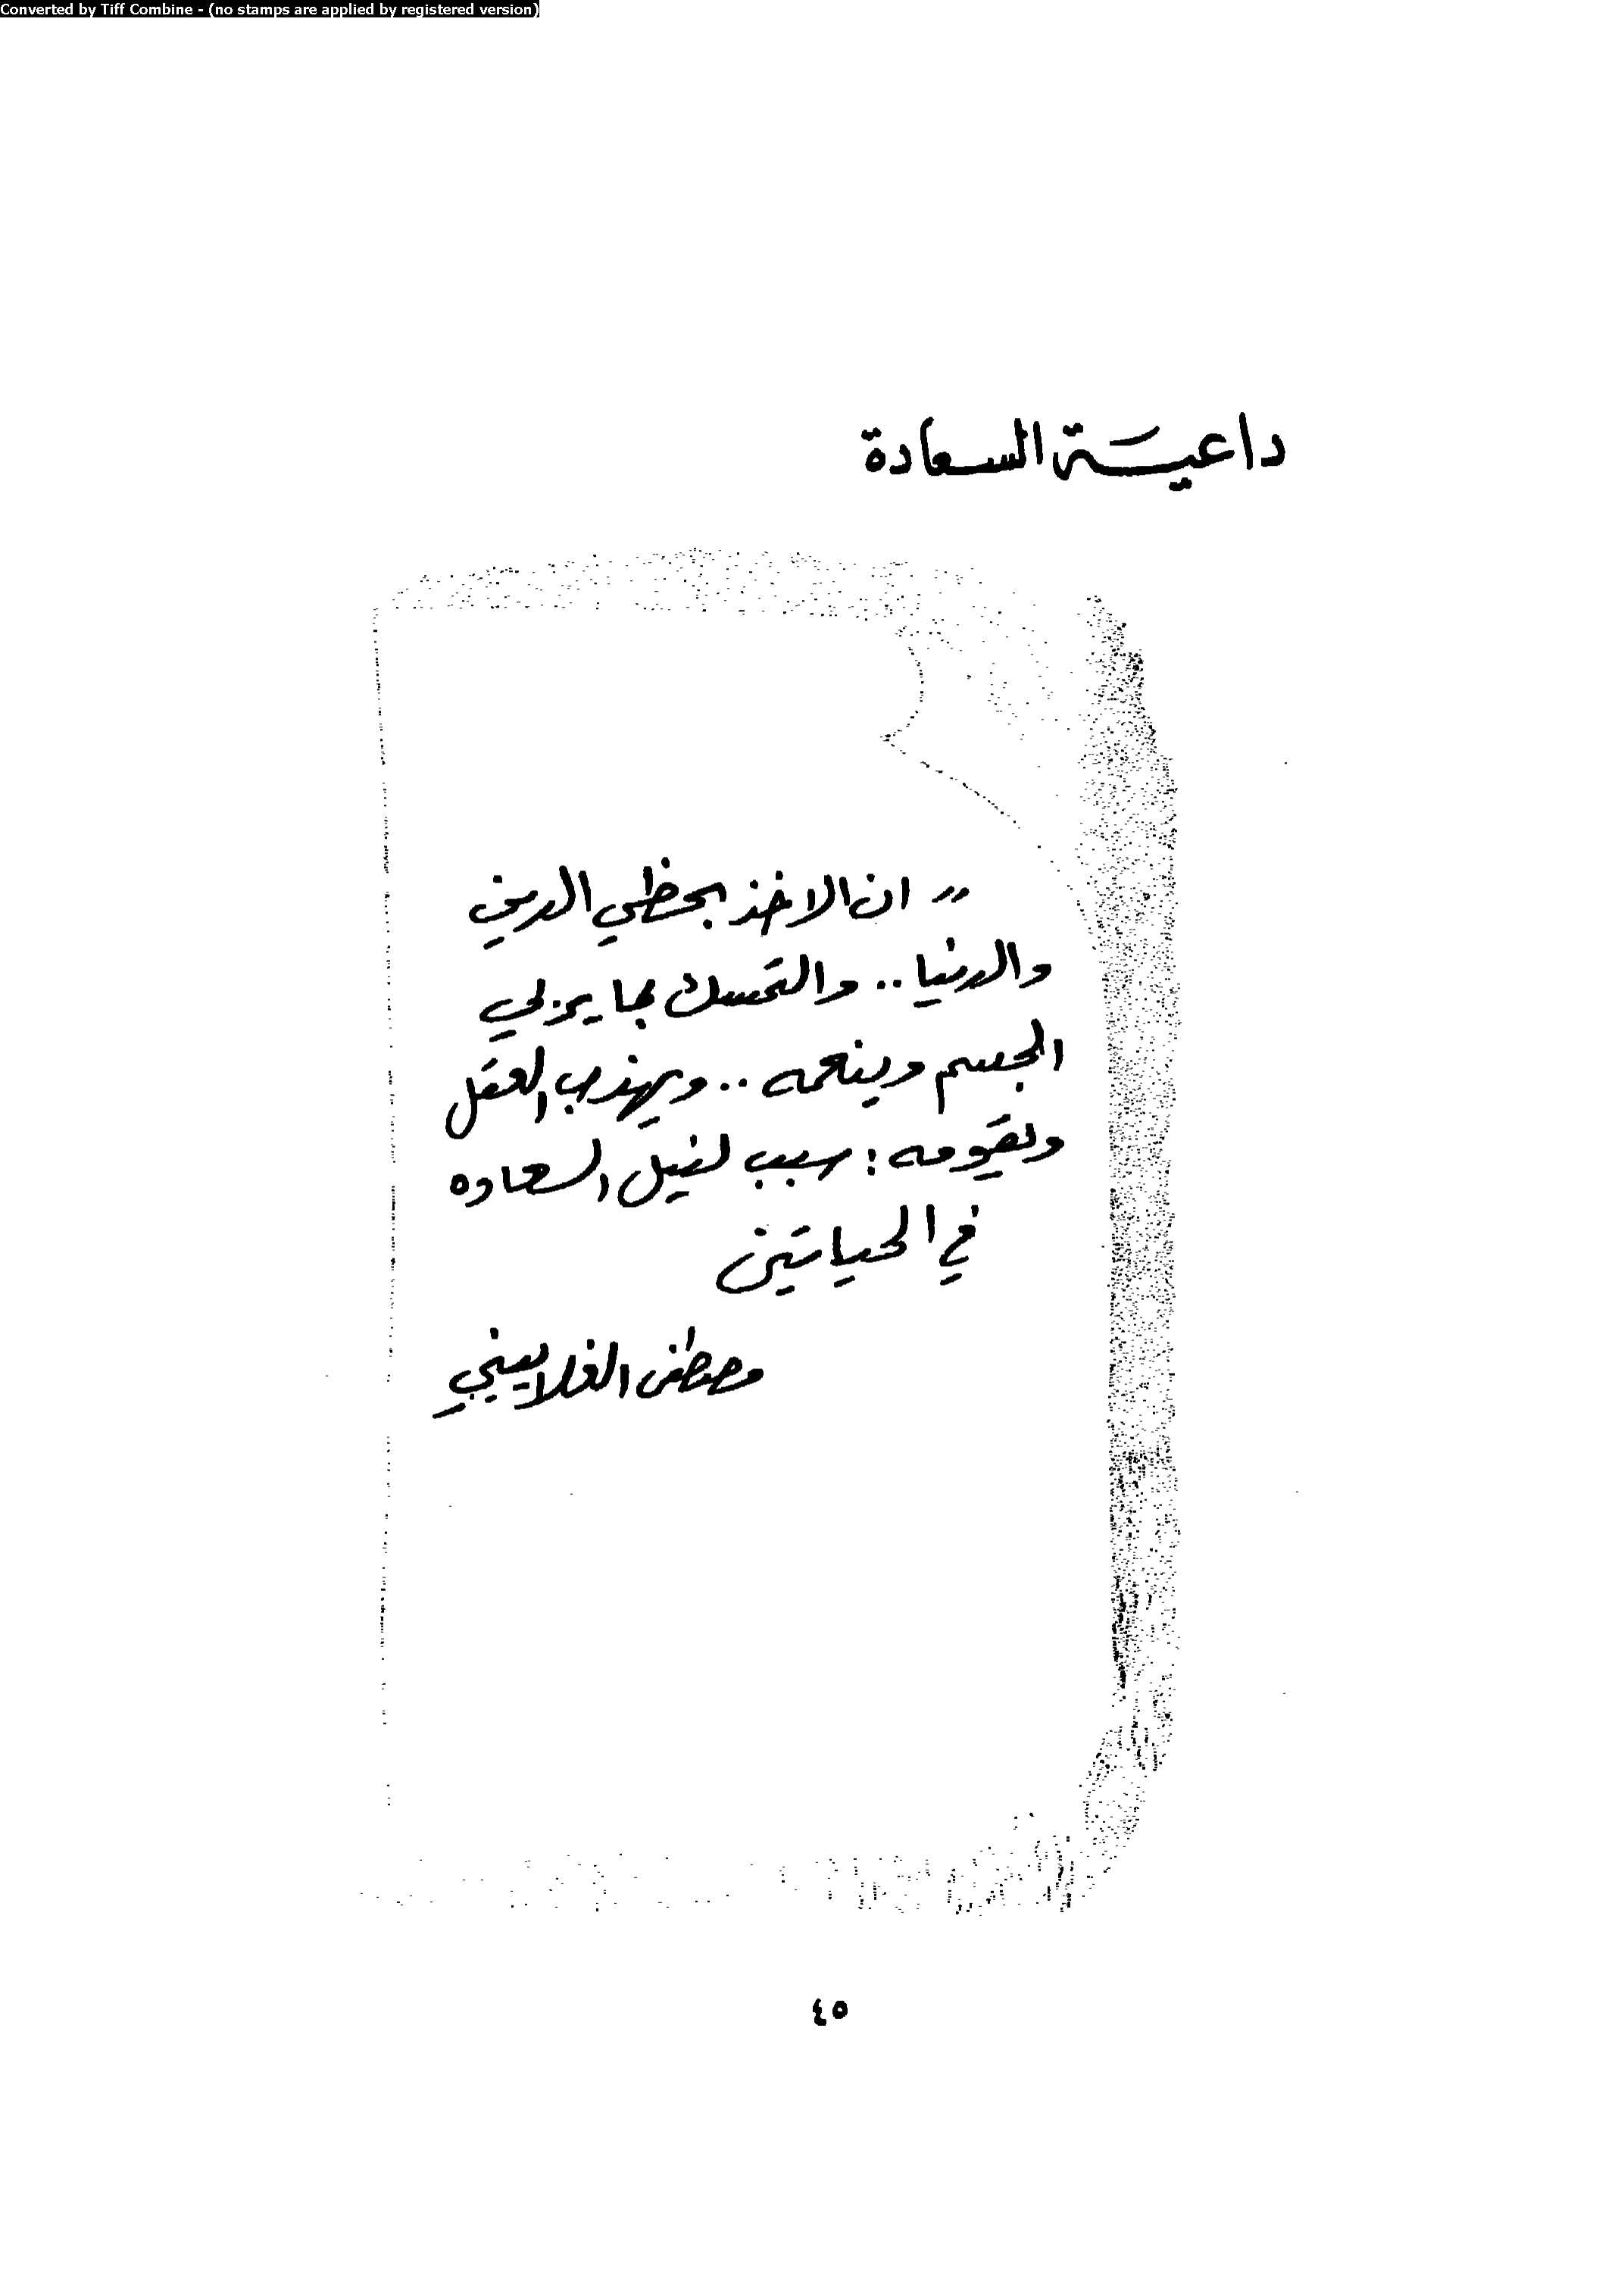 Converted by Tiff Combine - (no stamps are applied by registered version)
داعية السعادة
" ان الاخذ بحظي الدين
والدنيا .. والتمسك بما يربي
الجسم وينعمه .. ويهذب العقل
ويقومه : سبب لنيل السعاده
في الحياتين
مصطفى الغلاييني
٤٥